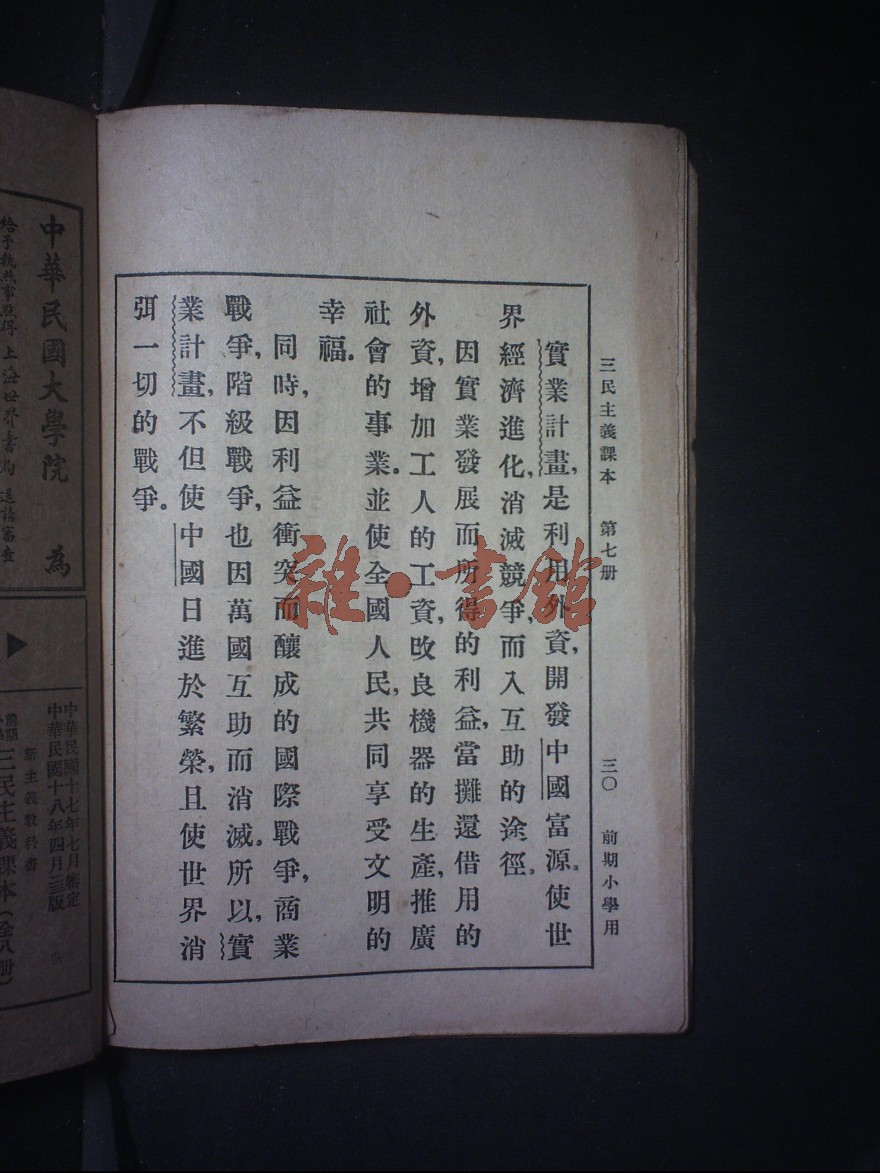 三民主義課本 第七册 三〇 前期小學用
實業計畫，是利用外資，開發中國富源。使世
界經濟進化，消滅競爭，而入互助的途徑。
因實業發展而所得的利益，當攤還借用的
外資，增加工人的工資，改良機器的生產，推廣
社會的事業。並使全國人民，共同享受文明的
幸福。
同時，因利益衝突而釀成的國際戰爭，商業
戰爭，階級戰爭，也因萬國互助而消滅。所以，實
業計畫，不但使中國日進於繁榮，且使世界消
弭一切的戰爭。
雜·書館
中華民國大學院 為
上海世界書局 送請審查
中華民國十七年七月審定
中華民國十八年四月三版
新主義教科書
三民主義課本（全八册）